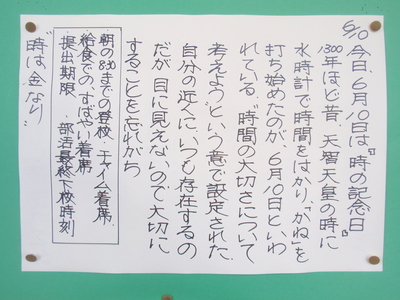 6/10 今日、6月10日は『時の記念日』
1300年ほど昔、天智天皇の時に
水時計で時間をはかり、「かね」を
打ち始めたのが、6月10日といわ
れている。"時間の大切さについて
考えよう"という意で設定された。
自分の近くに、いつも存在するの
だが、目に見えないので大切に
することを忘れがち
朝の8:30までの登校・チャイム着席
給食での、すばやい着席
提出期限 部活最終下校時刻
"時は金なり"